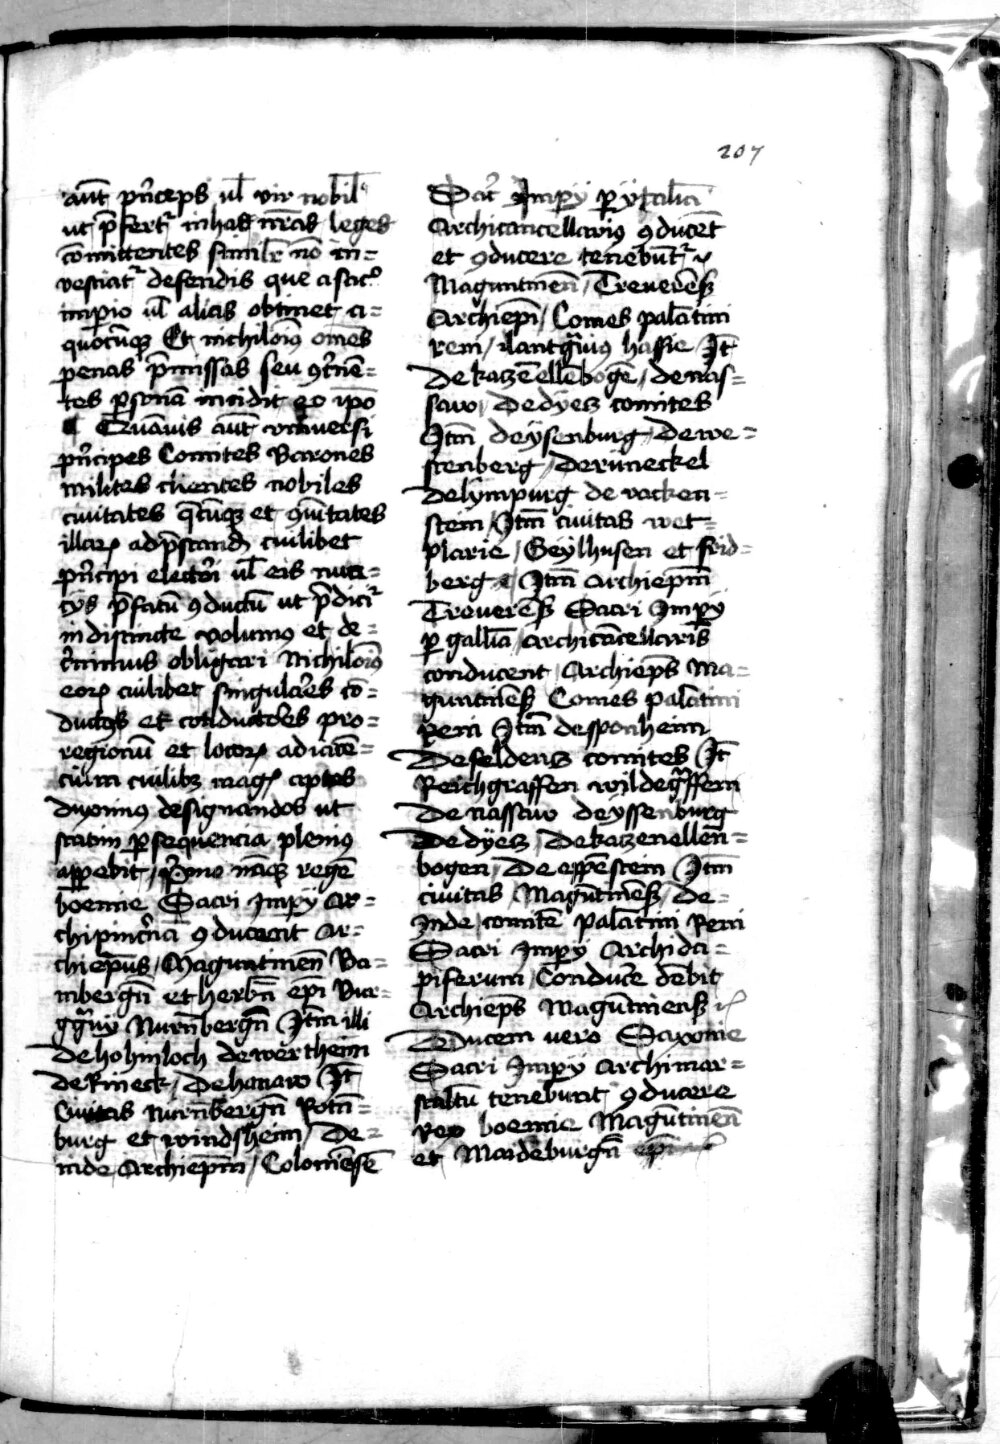 207
aūt p̄nceps ul̄ vir nobil̄
ut p̄fertᷣ in has nr̄as leges
cōmittentes simil̄r nō in-
vestiatᷣ de feudis que a sacᵒ
imperio ul̄ alias obtinet a
quocūqꝫ Et nichilōīꝰ om̄es
penas p̄missas seu ꝯtinē-
tes persōnā incidit eo ip̄o
¶ Quāvis aūt universi
p̄ncipes Comites Barones
milites clientes nobiles
civitates q̄cūqꝫ et ꝯmūitates
illarꝝ ad p̄standū cuilibet
p̄ncipi electōri ul̄ eis nūc-
ciis p̄fatū ꝯductū ut p̄diciᷣ
indistincte volumꝰ et de-
c̄nimus obligari Nichilōīꝰ
eorꝝ cuilibet singulāres cō-
ductꝰ et conductōres pro
regionū et locorꝝ adiacē-
cium cuilibꝫ magꝭ aptos
duximꝰ designandos ut
statim ꝑ sequencia pleniꝰ
apparebit / Primo nāqꝫ regē
boemie Sacri Imperij Ar-
chipinc̄nā ꝯducent Ar-
chiep̄us / Maguntinen̄ Ba-
mbergn̄ et herbn̄ ep̄i Bur-
ggᷓvij Nurnbergn̄ Itm̄ illi
de hohinloch de wertheim
de Rineck / De hanaw It̄
Civitas Nurnbergn̄ Rotn̄-
burg et windsheim / De-
inde Archiep̄m / Coloniēsē
Sacᷣ Imperij per ytaliā
Archicancellariū ꝯducēt
et ꝯducere tenebūtᷣ
Maguntinen̄ / Treverēn̄
Archiep̄i / Comes palatini
reni / lantgᷓviꝰ hassie It̄
de kaczēellēbogē / de nas-
saw / De dyecz comites
Itm̄ de ysenburg / De we-
stenberg / De rūneckel
de lympurg de vacken-
stein / Itm̄ civitas wet-
plarie / Geylhusen et frid-
berg Itm̄ Archiep̄m̄
Treverēn̄ Sacri Imperij
per galliā / Archicācellariū
conducent / Archiep̄s Ma-
guntinēn̄ Comes palatini
Reni Itm̄ de sponheim
de feldencz comites It̄
Reichgraffen wildegᷓffem
de nassaw de yssenburg
De dyecz / De kaczenellen̄-
bogen / De eppēstein Itm̄
civitas Magūtinēn̄ / De-
Inde comitē palatini Reni
Sacri Imperij Archida-
piferum / Conducē dēbit
Archiep̄s Maguntinenn̄
Ducem vero Saxonie
Sacri Imperij Archimar-
scaltū tenebunt ꝯducere
Rex boemie Magūtinēn̄
et Maideburgn̄